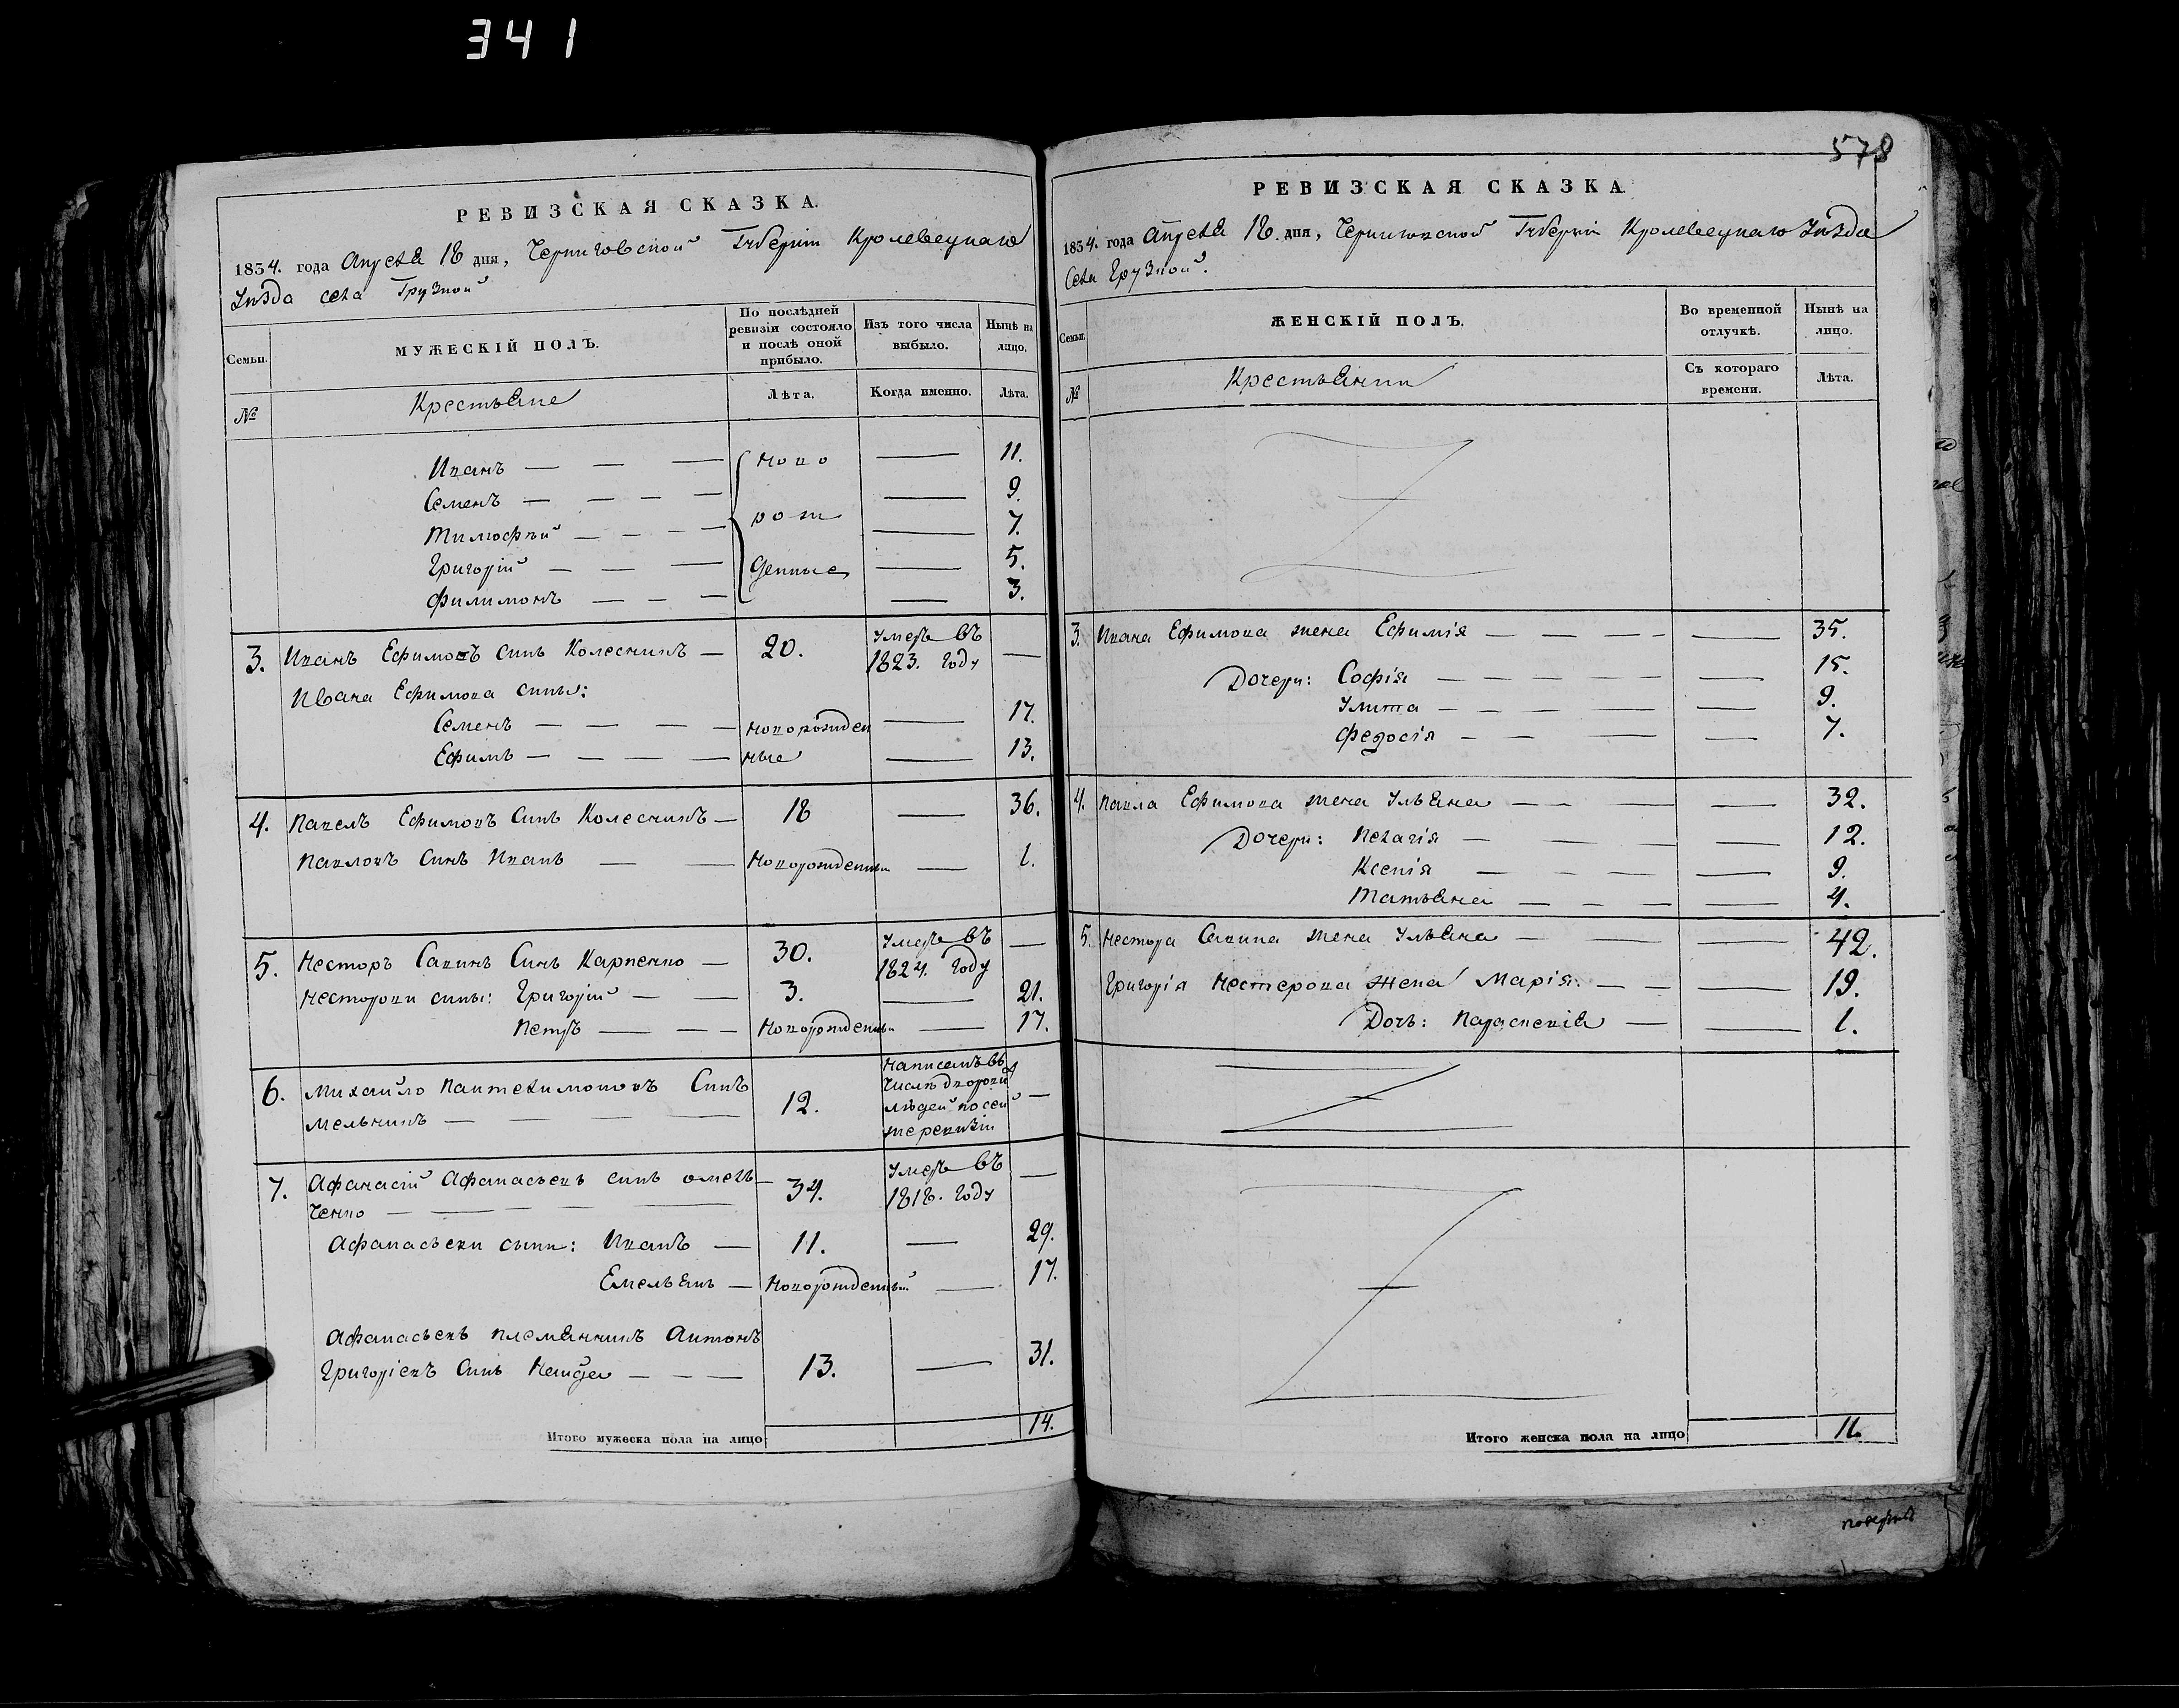 341
РЕВИЗСКАЯ СКАЗКА.
1834. года Апреля 18 дня, Черниговской Губернiи Кролевецкаго
Уѣзда села Грузкой
Семьи.
МУЖЕСКІЙ ПОЛЪ.
По послѣдней ревизіи состояло и послѣ оной прибыло.
Изъ того числа выбыло.
Нынѣ на лицо.
№
Крестьяне
Лѣта.
Когда именно.
Лѣта.
Иванъ — — — ново — 11.
Семенъ — — — — — 9.
Тимофѣй — — — рож — 7.
Григорій — — — — 5.
Филимонъ — — — денные — 3.
3. Иванъ Ефимовъ сынъ Колесникъ — 20. Умеръ въ 1823. году —
Ивана Ефимова сыны:
Семенъ — — — новорожден — 17.
Ефимъ — — — — ные — 13.
4. Павелъ Ефимовъ Сынъ Колесникъ — 18 — 36.
Павловъ Сынъ Иванъ — — Новорожденный — 1.
5. Несторъ Савинъ Сынъ Карпенко — 30. Умеръ въ 1824. году —
Несторови сыны: Григорій — — 3. — 21.
Петръ — — — Новорожденный — 17.
6. Михайло Пантелимоновъ Сынъ
Мельникъ — — — 12. Написанъ въ числѣ дворовых людей по сей же ревизіи —
7. Афанасій Афанасьевъ сынъ Омель—
ченко — — — — — 34. Умеръ въ 1818. году —
Афанасьеви сыни: Иванъ — 11. — 29.
Емельянъ — Новорожденный — 17.
Афанасьевъ племянникъ Антонъ
Григоріевъ Сынъ — — — 13. — 31.
Итого мужеска пола на лицо 14.
578
РЕВИЗСКАЯ СКАЗКА.
1834. года Апреля 18. дня, Черниговской Губерніи Кролевецкаго Уѣзда
Села Грузкой.
Семьи.
ЖЕНСКІЙ ПОЛЪ.
Во временной отлучкѣ.
Нынѣ на лицо.
№
Крестьянки
Съ котораго времени.
Лѣта.
3. Ивана Ефимова жена Ефимія — — — — — 35.
Дочери: Софія — — — — — — 15.
Улита — — — — — 9.
Федосія — — — — 7.
4. Павла Ефимова жена Ульяна — — — — 32.
Дочери: Пелагія — — — — 12.
Ксенія — — — — 9.
Татьяна — — — — 4.
5. Нестора Савина жена Ульяна — — — 42.
Григорія Нестерова жена Марія. — — — 19.
Дочь: Параскевія — — 1.
Итого женска пола на лицо 11.